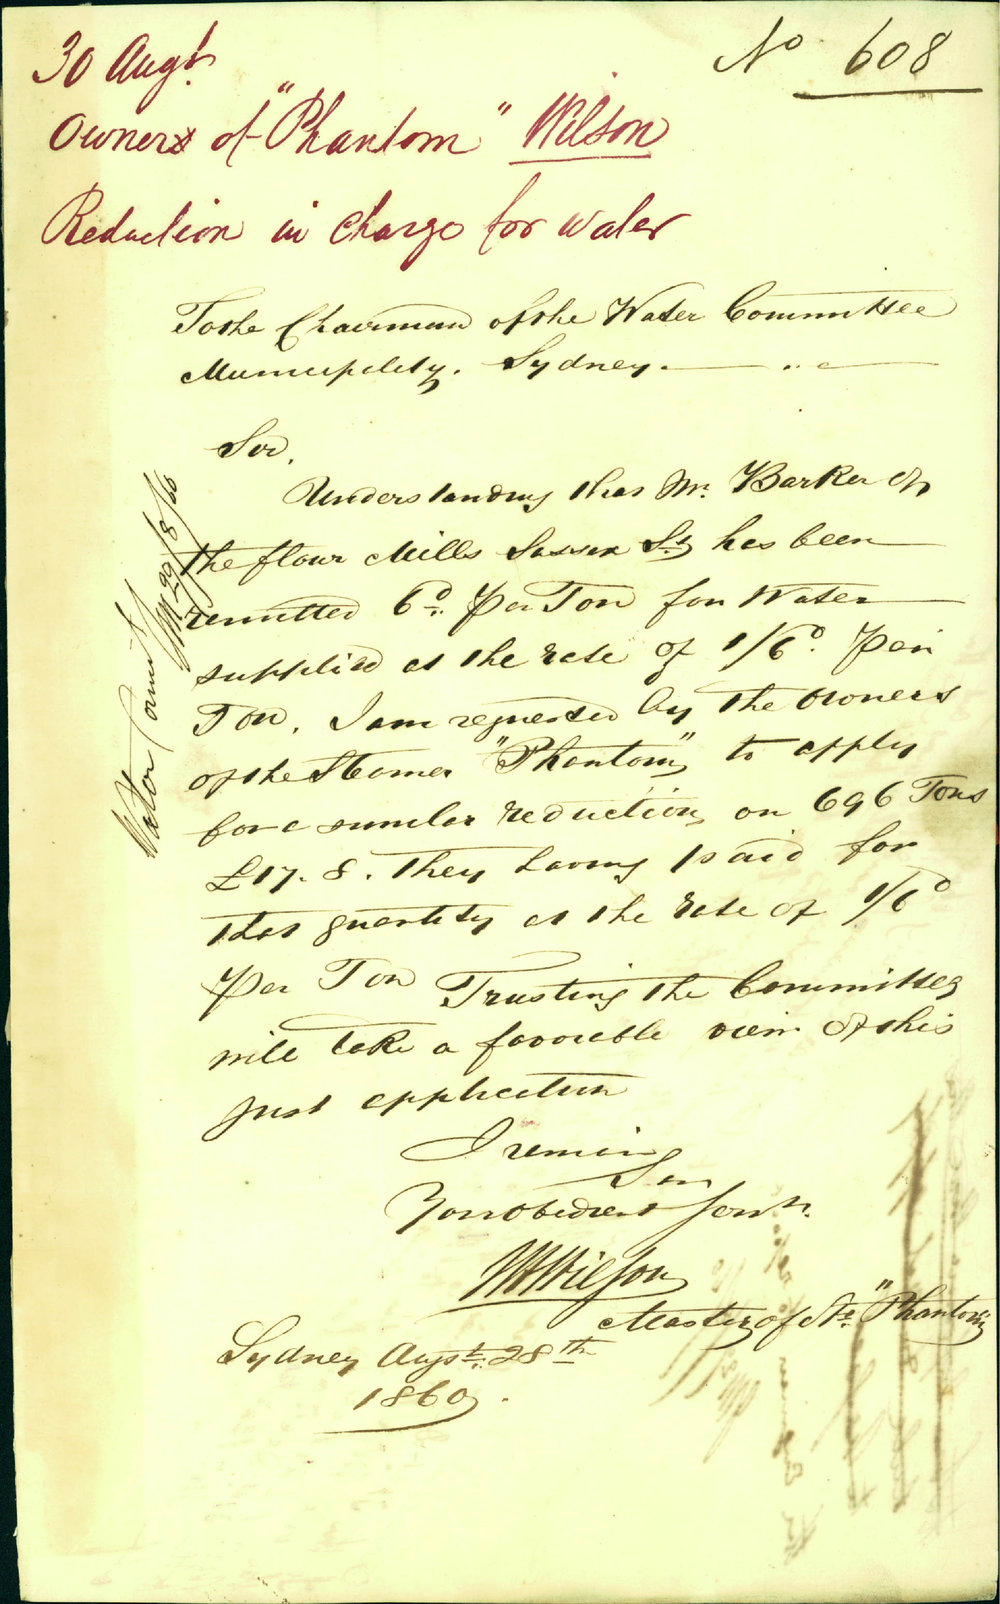 30 Augt.
No 608
Owners of "Phantom" Wilson
Reduction in Charge for Water
To the Chairman of the Water Committee
Municipelity. Sydney.
Sir,
Understanding that Mr. Barker of
the flour Mills Sussex St. has been
remitted 6d. Per Ton for Water
supplied at the rate of 1/6d. Per
Ton, I am requested by the owners
of the Steamer "Phantom" to apply
for a similar reduction, on 696 Tons
£17. 8. They having paid for
that quantity at the rate of 1/6d
Per Ton Trusting the Committee
will take a favorable view of this
just application
I remain
Sir
Your Obedient Servt.
WHWilson
Master of Str. "Phantom"
Sydney Augst. 28th
1860.
Water Committ
29/8/60